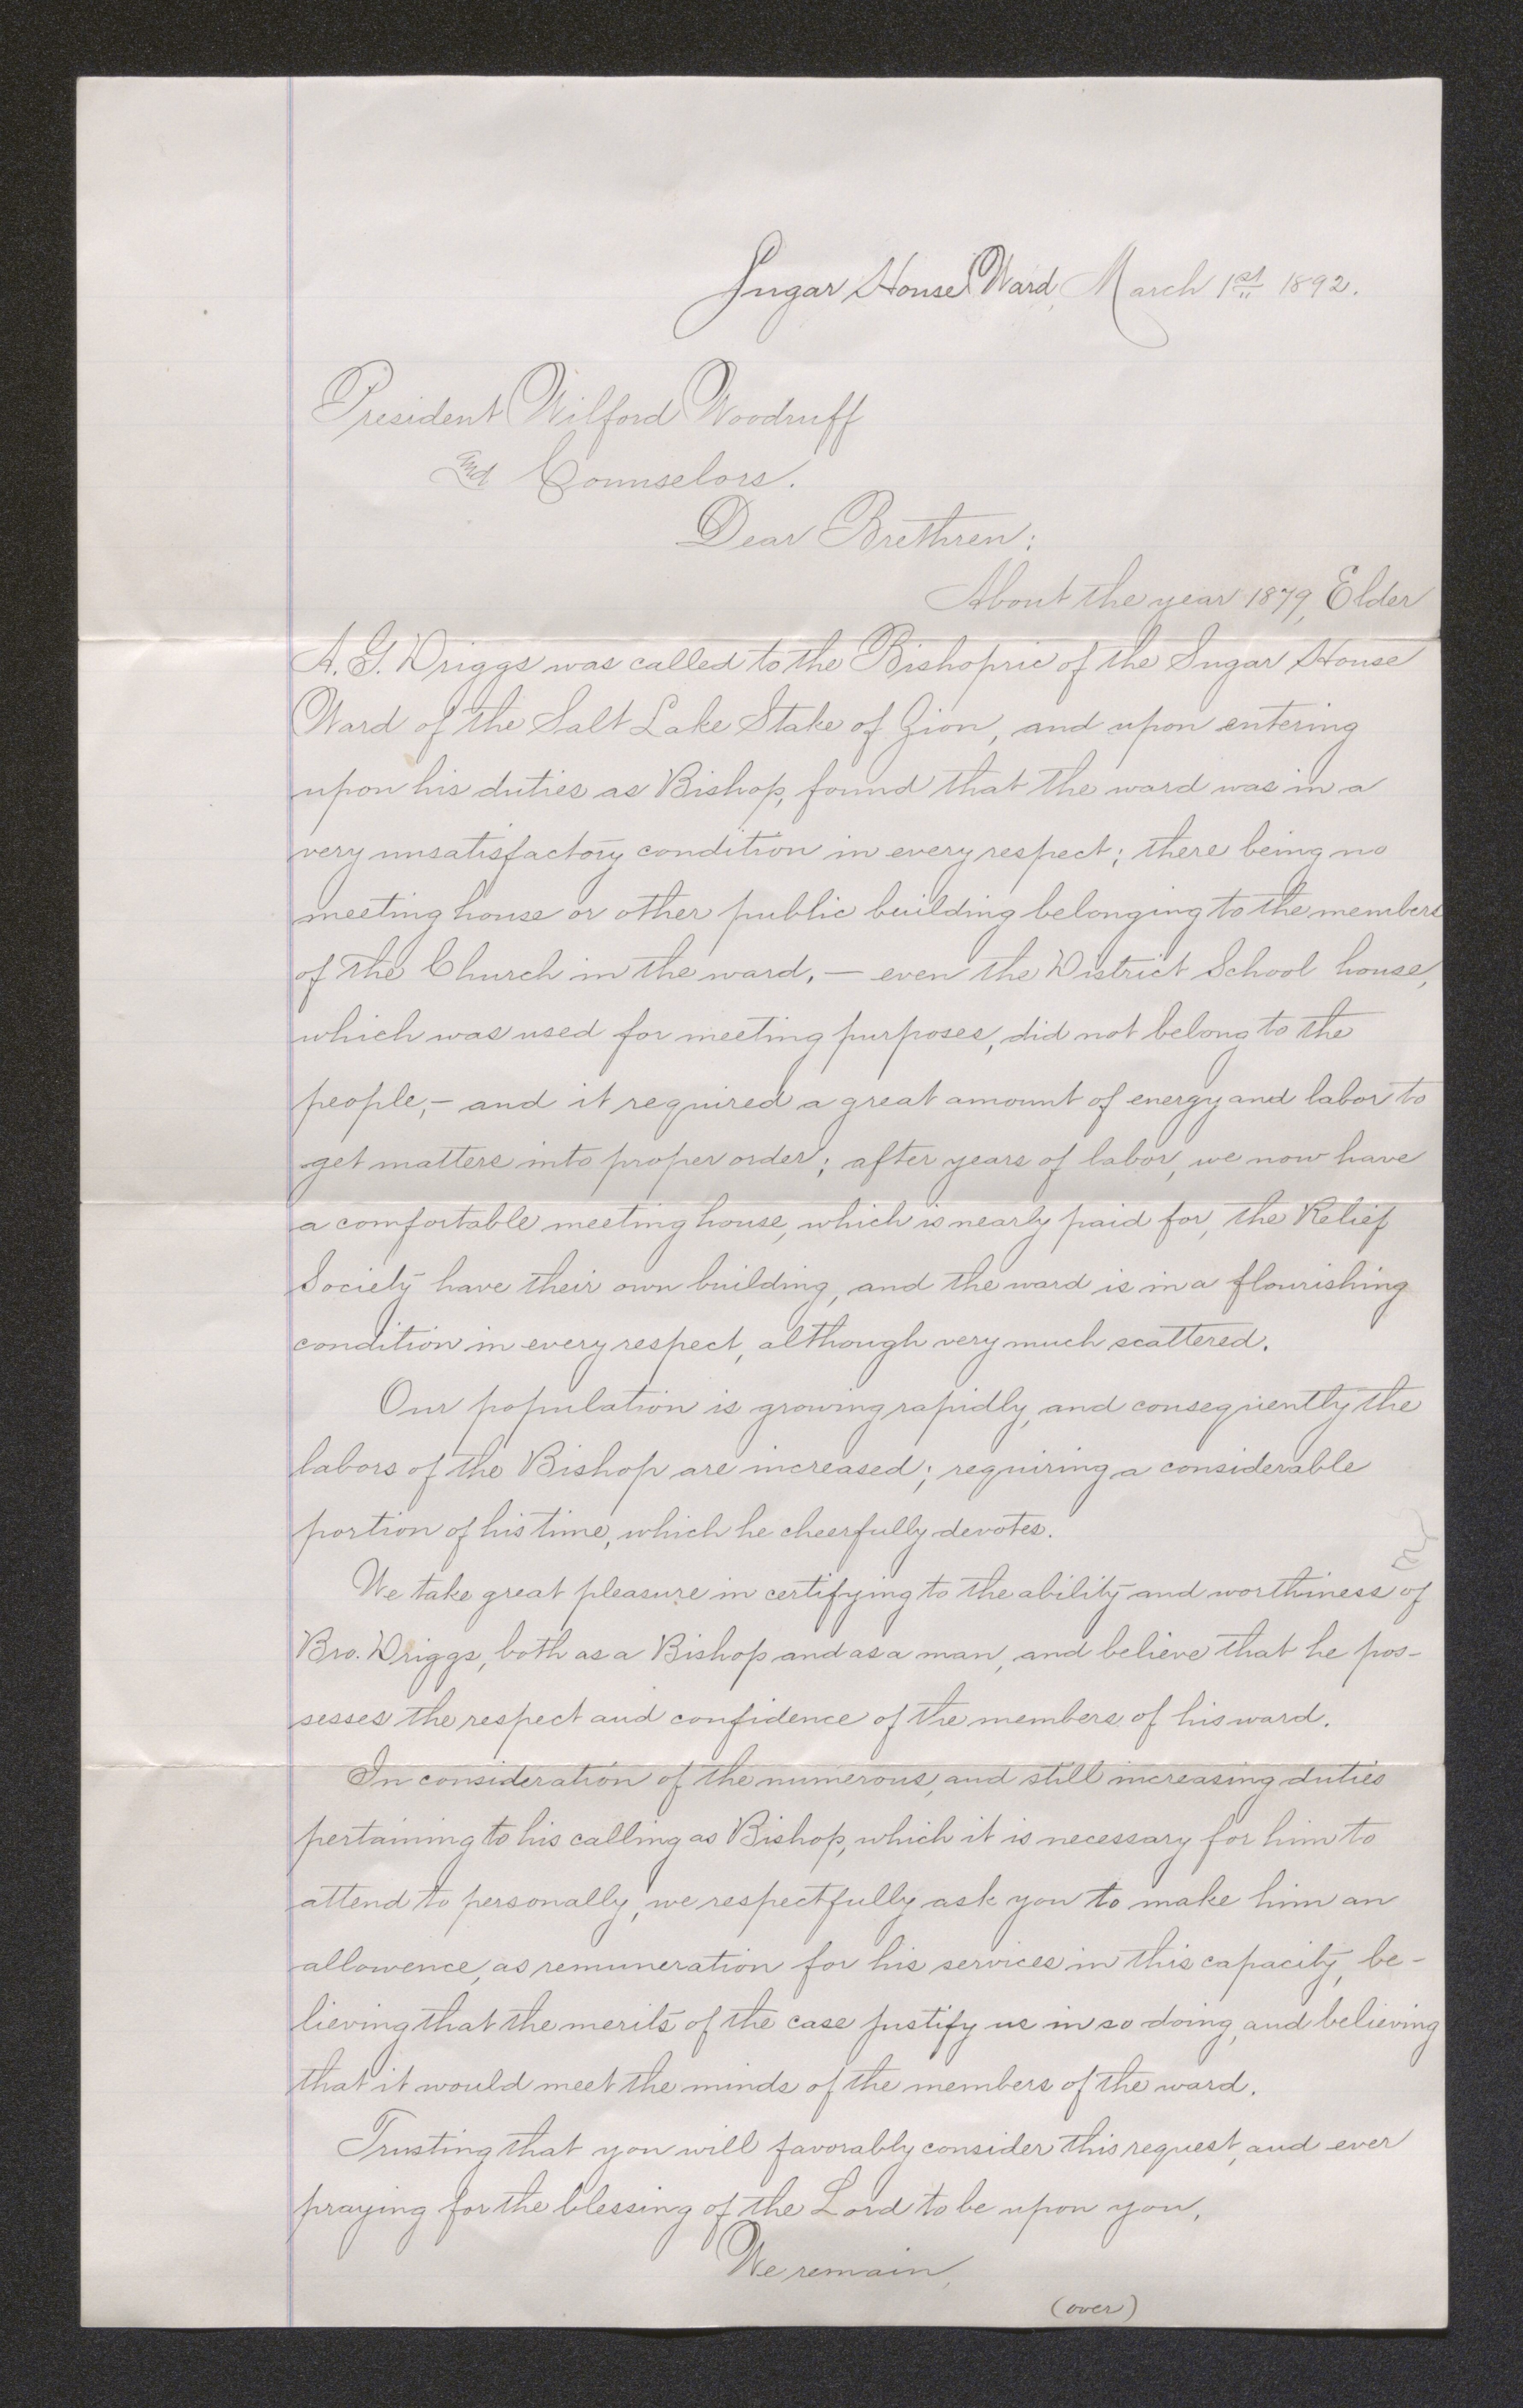 Sugar House Ward, March 1st 1892.
President Wilford Woodruff
And Counselors.
Dear Brethren:
About the year 1879, Elder
A. G. Driggs was called to the Bishopric of the Sugar House
Ward of the Salt Lake Stake of Zion, and upon entering
upon his duties as Bishop, found that the ward was in a
very unsatisfactory condition in every respect; there being no
meeting house or other public building belonging to the members
of the Church in the ward, — even the District School house,
which was used for meeting purposes, did not belong to the
people, — and it required a great amount of energy and labor to
get matters into proper order; after years of labor, we now have
a comfortable meeting house, which is nearly paid for, the Relief
Society have their own building, and the ward is in a flourishing
condition in every respect, although very much scattered.
Our population is growing rapidly, and consequently the
labors of the Bishop are increased; requiring a considerable
portion of his time, which he cheerfully devotes.
We take great pleasure in certifying to the ability and worthiness of
Bro. Driggs, both as a Bishop and as a man, and believe that he pos-
sesses the respect and confidence of the members of his ward.
In consideration of the numerous, and still increasing duties
pertaining to his calling as Bishop, which it is necessary for him to
attend to personally, we respectfully ask you to make him an
allowence, as remuneration for his services in this capacity, be-
lieving that the merits of the case justify us in so doing, and believing
that it would meet the minds of the members of the ward.
Trusting that you will favorably consider this request, and ever
praying for the blessing of the Lord to be upon you,
We remain,
(over)